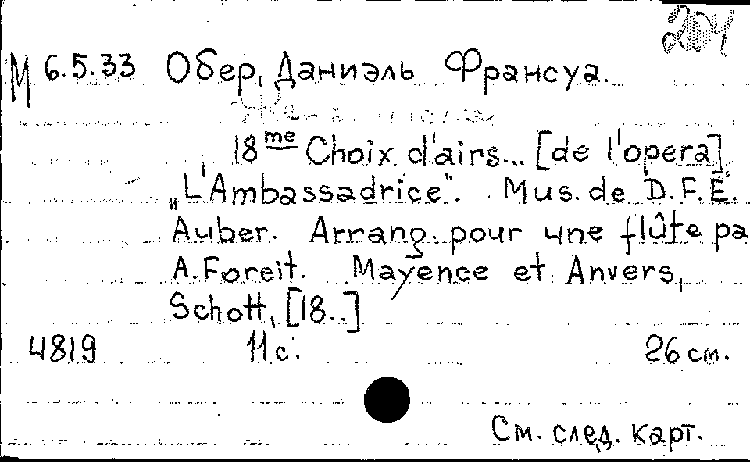 204
М 6.5.33 Обер, Даниэль Франсуа.
18me Choix d'airs... [de l'opera]
„L'Ambassadrice". Mus. de D.F.E.
Auber. Arrang. pour une flûte pa
A. Foreit. Mayence et Anvers,
Schott, [18..]
4819 11 с. 26 см.
См. след. карт.